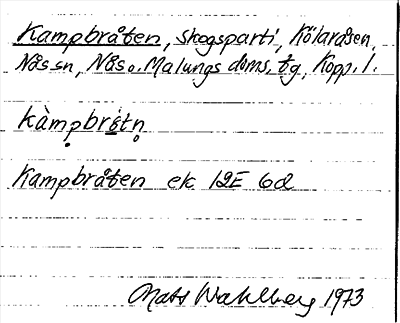 Kampbråten, skogsparti, Kölaråsen,
Nås sn, Nås o. Malungs doms. tg, Kopp. l.
kàmpbrǫ́tn̥
Kampbråten ek 12E 6d
Mats Wahlberg 1973